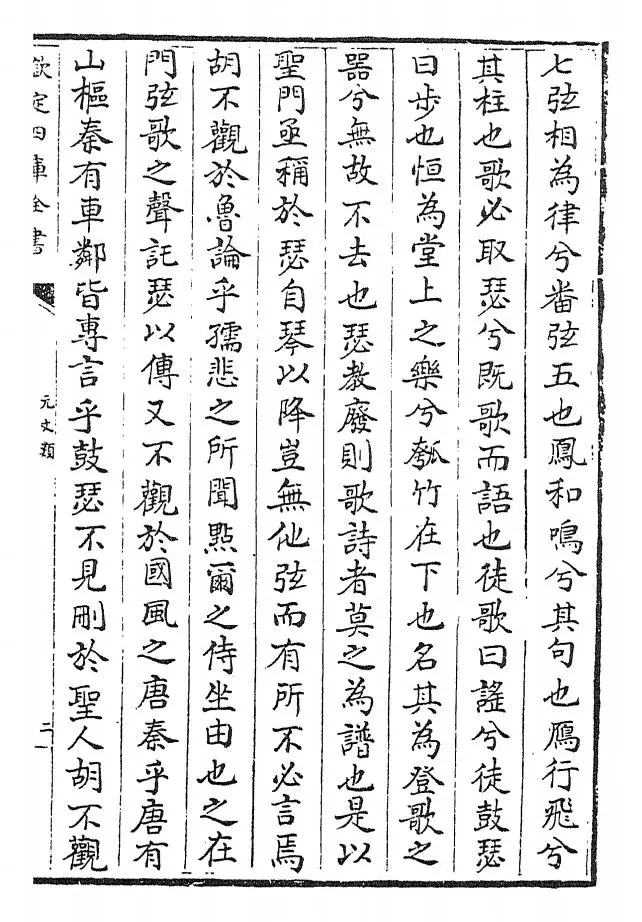 七弦相為律兮畨弦五也鳳和鳴兮其句也鴈行飛兮
其柱也歌必取瑟兮既歌而語也徒歌曰謠兮徒鼓瑟
曰步也恒為堂上之樂兮瓠竹在下也名其為登歌之
器兮無故不去也瑟教廢則歌詩者莫之為譜也是以
聖門亟稱於瑟自琴以降豈無他弦而有所不必言焉
胡不觀於魯論乎孺悲之所聞㸃爾之侍坐由也之在
門弦歌之聲託瑟以傳又不觀於國風之唐秦乎唐有
山樞秦有車鄰皆專言乎鼓瑟不見刪於聖人胡不觀
欽定四庫全書
元文類
二